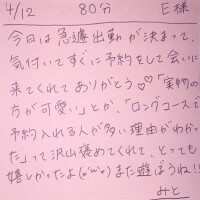 4/12 80分 E様
今日は急遽出勤が決まって、
気付いてすぐに予約をして会いに
来てくれてありがとう♡♡「実物の
方が可愛い」とか、「ロングコースで
予約入れる人が多い理由がわかっ
た」って沢山褒めてくれて、とっても
嬉しかったよ(o'ω'o)また遊ぼうね!!
みと